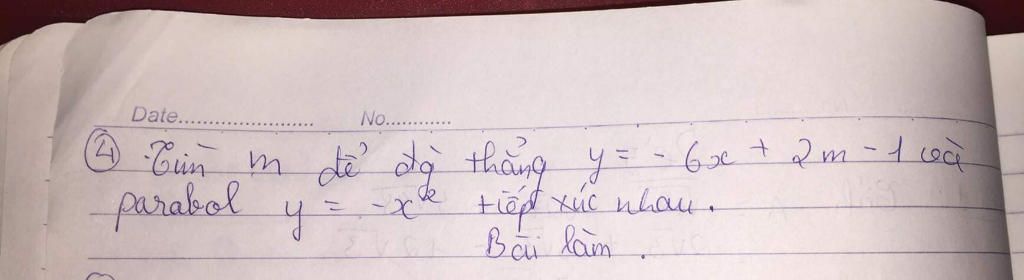 Date........................ No............
4 Tìm m để đg thẳng y = - 6x + 2m - 1 và
parabol y = -x² tiếp xúc nhau.
Bài làm.